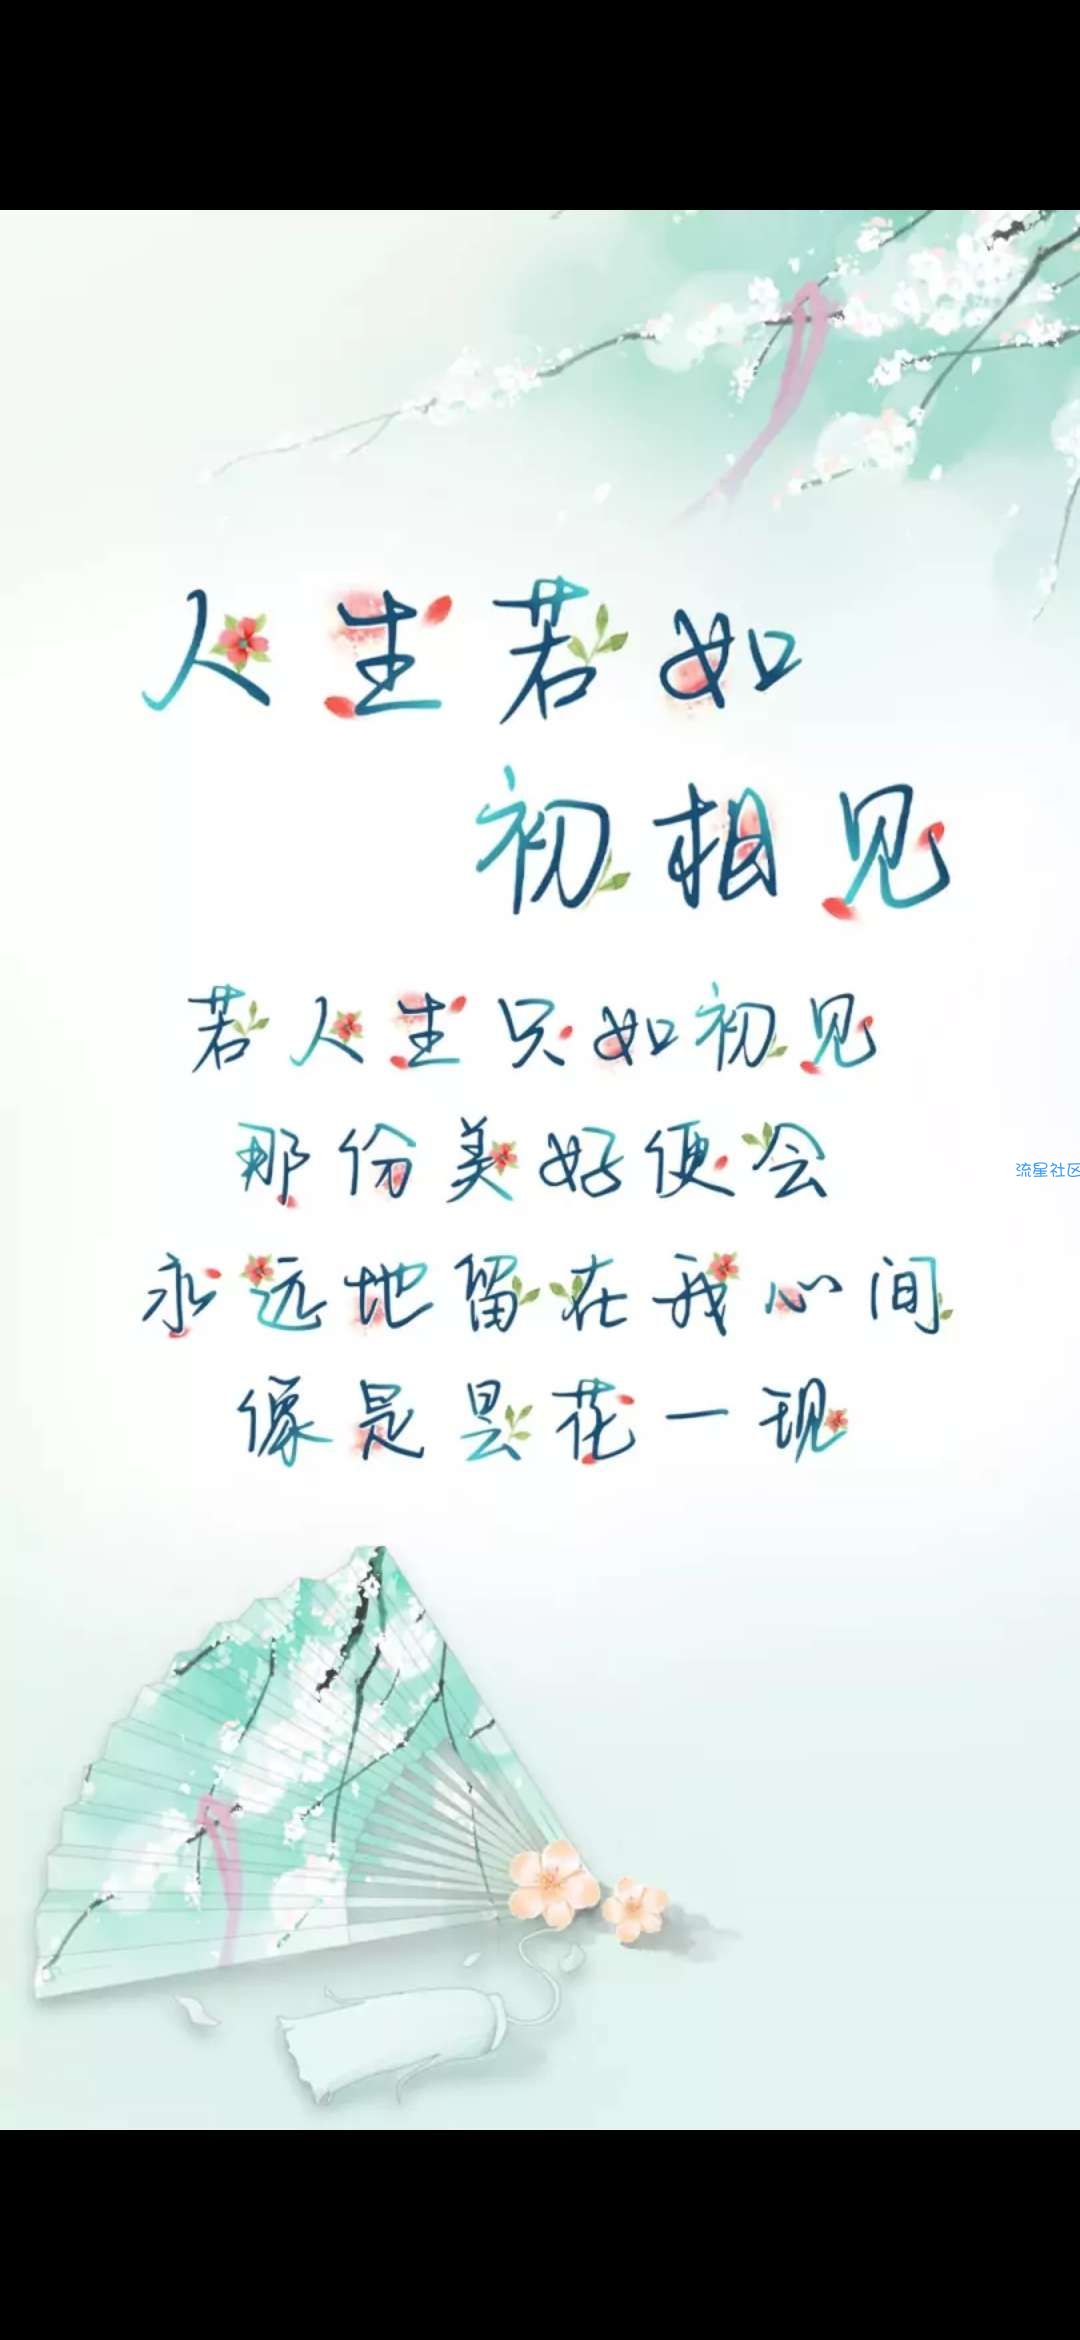 人生若如
初相见
若人生只如初见
那份美好便会
永远地留在我心间
像是昙花一现
流星社区